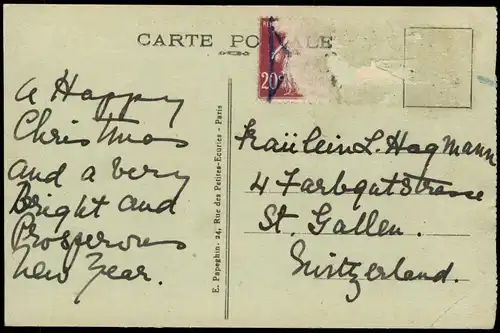 CARTE POSTALE
20c
A Happy
Christmas
and a very
Bright and
Prosperous
New Year.
E. Papeghin - 24, Rue des Petites-Ecuries - Paris
Fräulein L. Hagmann
4 Farbgutstrasse
St. Gallen.
Switzerland.